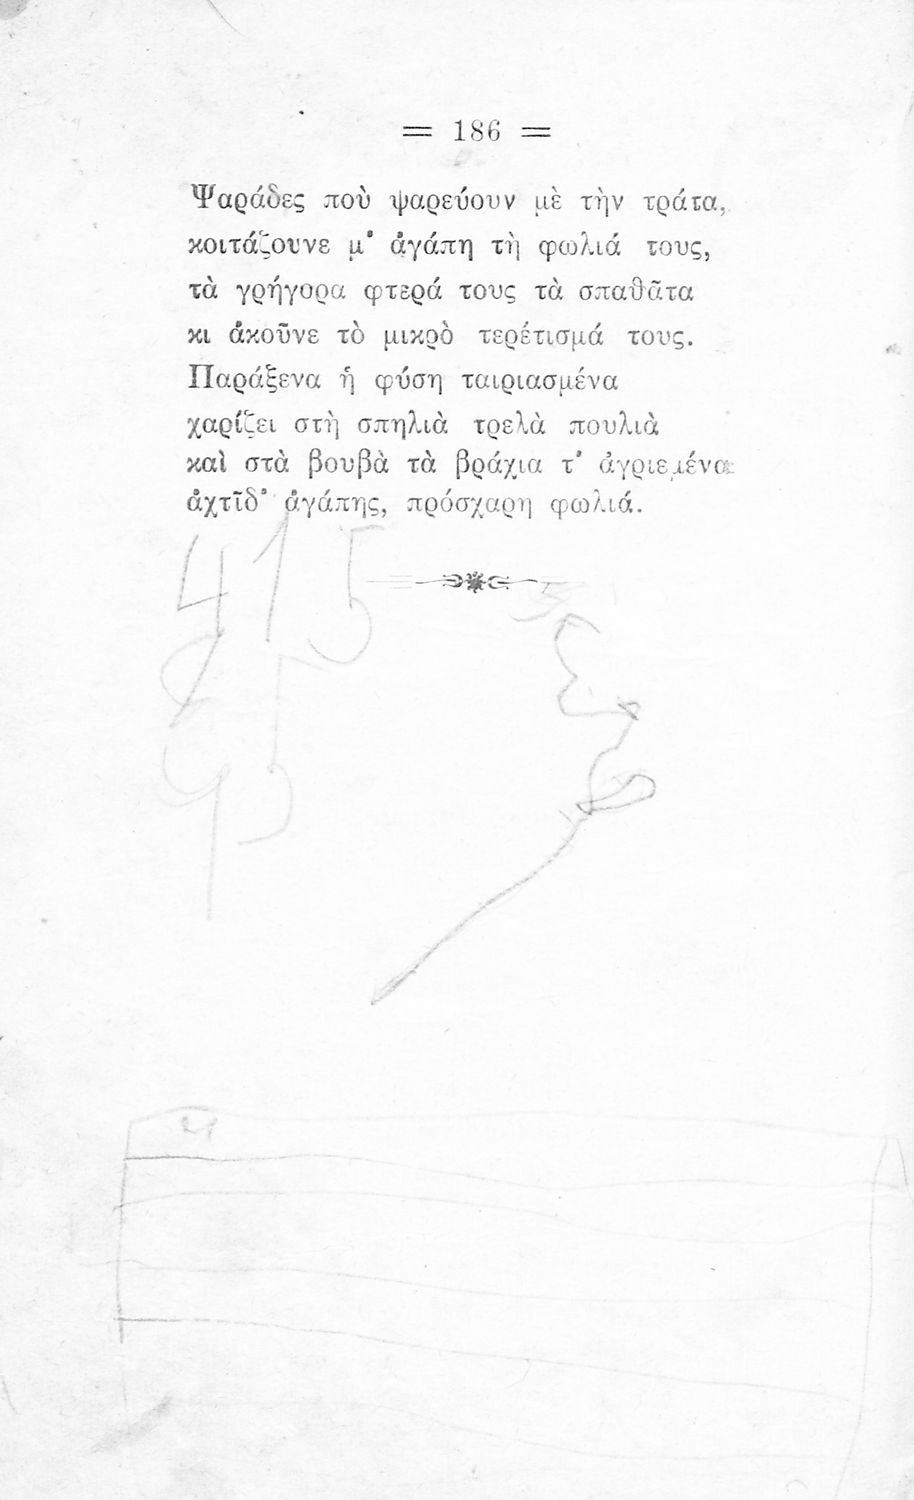 = 186 =
Ψαράδες ποὺ ψαρεύουν μὲ τὴν τράτα,
κοιτάζουνε μ' ἀγάπη τὴ φωλιά τους,
τὰ γρήγορα φτερά τους τὰ σπαθᾶτα
κι ἀκοῦνε τὸ μικρὸ τερέτισμά τους.
Παράξενα ἡ φύση ταιριασμένα
χαρίζει στὴ σπηλιὰ τρελὰ πουλιὰ
καὶ στὰ βουβὰ τὰ βράχια τ' ἀγριεμένα
ἀχτῖδ' ἀγάπης, πρόσχαρη φωλιά.
415